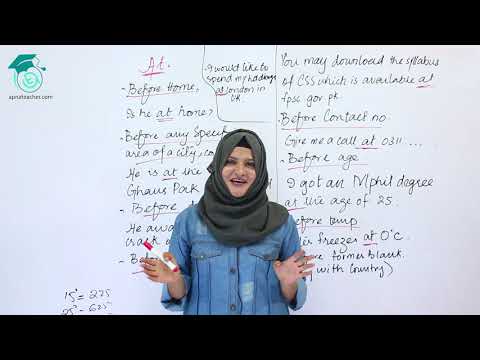 apnateacher.com
At.
- Before Home,
Is he at home?
- Before any Speci
area of a city, co
He is at the
Ghaus Park
- Before
He awa
- Bef
15² = 225
25² = 625
I would like to
spend my holidays
at London in
UK
You may download the syllabus
of CSS which is available at
fpsc gov pk
- Before Contact no
Give me a call at 0311 ....
- Before age
I got an Mphil degree
at the age of 25.
Before temp
freezes at 0°C.
with Country)